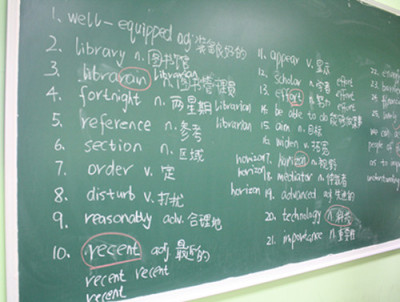 1. well-equipped adj 装备良好的
2. library n. 图书馆
3. librarian n. 图书管理员
librarian
4. fortnight n. 两星期
librarian
5. reference n. 参考
librarian
6. section n. 区域
7. order v. 定
8. disturb v. 打扰
9. reasonably adv. 合理地
10. recent adj 最近的
recent recent
recent
11. appear v. 显示
12. scholar n. 学者 effort
13. effort n. 努力 effort
14. be able to do
15. aim n. 目标
16. widen v. 拓宽
horizon 17. horizon n. 视野
horizon 18. mediator n.
horizon 19. advanced adj 先进的
20. technology n. 科技
21. importance n. 重要性
22.
23.
24.
25.
as to
understanding